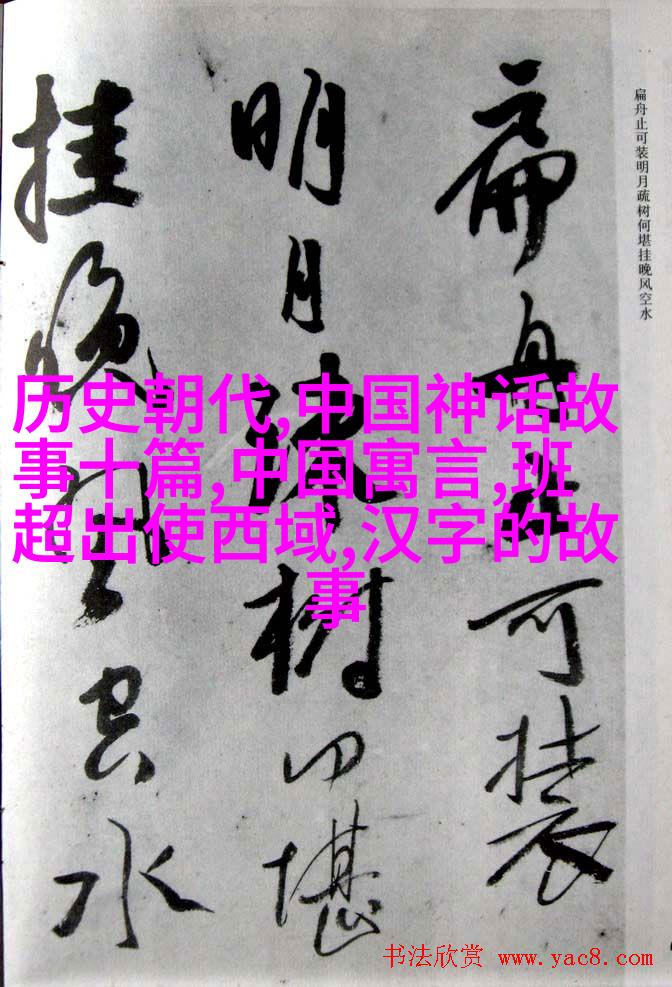 扁舟止可装
明月疏树何堪
挂晚风空水
扁舟止可装明月疏树何堪挂晚风空水
历史朝代,中国神话故
事十篇,中国寓言,班
超出使西域,汉字的故
事
书法欣赏 www.yac8.com